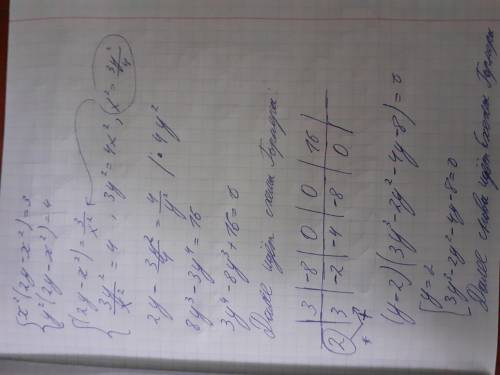 { x²(2y-x²)=3
{ y²(2y-x²)=4
{ (2y-x²)=3/x²
{ 3y²/x²=4, 3y²=4x², (x²=3y²/4)
2y-3y²/4=4/y² |·4y²
8y³-3y⁴=16
3y⁴-8y³+16=0
Далее идёт схема Горнера:
| 3 | -8 | 0 | 0 | 16 |
2 | 3 | -2 | -4 | -8 | 0 |
(y-2)(3y³-2y²-4y-8)=0
[ y=2
[ 3y³-2y²-4y-8=0
Далее снова идёт схема Горнера